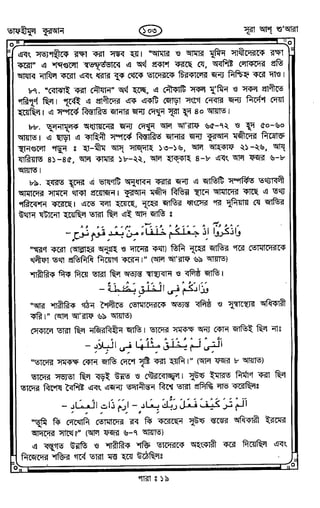 তাফহীমুল কুরআন
১০৩
সূরা আশ শু'আরা
এবং সত্যপন্থীকে রক্ষা করা সম্ভব হয়। "আমার ও আমার মুমিন সাথীদেরকে রক্ষা
করো" এ শব্দগুলো স্বতস্ফূর্তভাবে এ অর্থ প্রকাশ করছে যে, অবশিষ্ট লোকদের প্রতি
আযাব নাযিল করো এবং ধরার বুক থেকে তাদেরকে চিরকালের জন্য নিশ্চিহ্ন করে দাও।
৮৭. "বোঝাই করা নৌযান" অর্থ হচ্ছে, এ নৌকাটি সকল মু'মিন ও সকল প্রাণীতে
পরিপূর্ণ ছিল। পূর্বেই এ প্রাণীদের এক একটি জোড়া সংগে নেবার জন্য নির্দেশ দেয়া
হয়েছিল। এ সম্পর্কে বিস্তারিত জানার জন্য দেখুন সূরা হূদ ৪০ আয়াত।
৮৮. তুলনামূলক অধ্যয়নের জন্য দেখুন আল আ'রাফ ৬৫-৭২ ও হূদ ৫০-৬০
আয়াত। এ ছাড়া এ কাহিনী সম্পর্কে বিস্তারিত জানার জন্য কুরআন মজীদের নিম্নোক্ত
স্থানগুলো পড়ুন : হা-মীম আস্ সাজদাহ ১৩-১৬, আল আহকাফ ২১-২৬, আয্
যারিয়াত ৪১-৪৫, আল কামার ১৮-২২, আল হাক্কাহ ৪-৮ এবং আল ফজর ৬-৮
আয়াত।
৮৯. হযরত হূদের এ ভাষণটি অনুধাবন করার জন্য এ জাতিটি সম্পর্কিত তথ্যাবলী
আমাদের সামনে থাকা প্রয়োজন। কুরআন মজীদ বিভিন্ন স্থানে আমাদের কাছে এ তথ্য
পরিবেশন করেছে। এতে বলা হয়েছে, নূহের জাতির ধ্বংসের পর দুনিয়ায় যে জাতির
উত্থান ঘটানো হয়েছিল তারা ছিল এই আদ জাতি :
وَاذْكُرُوْآ اِذْ جَعَلَكُمْ خُلَفَآءَ مِنْ بَعْدِ قَوْمِ نُوْحٍ -
"স্মরণ করো (আল্লাহর অনুগ্রহ ও দানের কথা) তিনি নূহের জাতির পরে তোমাদেরকে
খলীফা তথা প্রতিনিধি নিয়োগ করেন।" (আল আ'রাফ ৬৯ আয়াত)
শারীরিক দিক দিয়ে তারা ছিল অত্যন্ত স্বাস্থ্যবান ও বলিষ্ঠ জাতি।
وَزَادَكُمْ فِى الْخَلْقِ بَصْطَةً -
"আর শারীরিক গঠন শৈলীতে তোমাদেরকে অত্যন্ত বলিষ্ঠ ও সুস্বাস্থ্যের অধিকারী
করি।" (আল আ'রাফ ৬৯ আয়াত)
সেকালে তারা ছিল নজিরবিহীন জাতি। তাদের সমকক্ষ অন্য কোন জাতিই ছিল না:
اَلَّتِىْ لَمْ يُخْلَقْ مِثْلُهَا فِى الْبِلَادِ -
"তাদের সমকক্ষ কোন জাতি দেশে সৃষ্টি করা হয়নি।" (আল ফজর ৮ আয়াত)
তাদের সভ্যতা ছিল বড়ই উন্নত ও গৌরবোজ্জ্বল। সুউচ্চ ইমারত নির্মাণ করা ছিল
তাদের বিশেষ বৈশিষ্ট এবং এজন্য তদানীন্তন বিশ্বে তারা প্রসিদ্ধি লাভ করেছিল:
اَلَمْ تَرَ كَيْفَ فَعَلَ رَبُّكَ بِعَادٍ - اِرَمَ ذَاتِ الْعِمَادِ -
"তুমি কি দেখোনি তোমাদের রব কি করেছেন সুউচ্চ স্তম্ভের অধিকারী ইরমের
আদদের সাথে?" (আল ফজর ৬-৭ আয়াত)
এ বস্তুগত উন্নতি ও শারীরিক শক্তি তাদেরকে অহংকারী করে দিয়েছিল এবং
নিজেদের শক্তির গর্বে তারা মত্ত হয়ে উঠেছিল:
পারা : ১৯